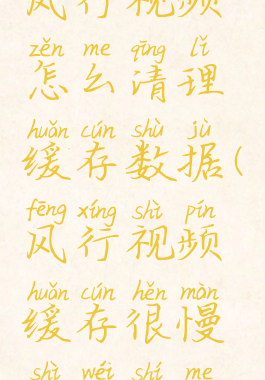 风行视频
zěn me qīng lǐ
怎么清理
huǎn cún shù jù
缓存数据(
fēng xíng shì pín
风行视频
huǎn cún hěn màn
缓存很慢
shì wéi shí me